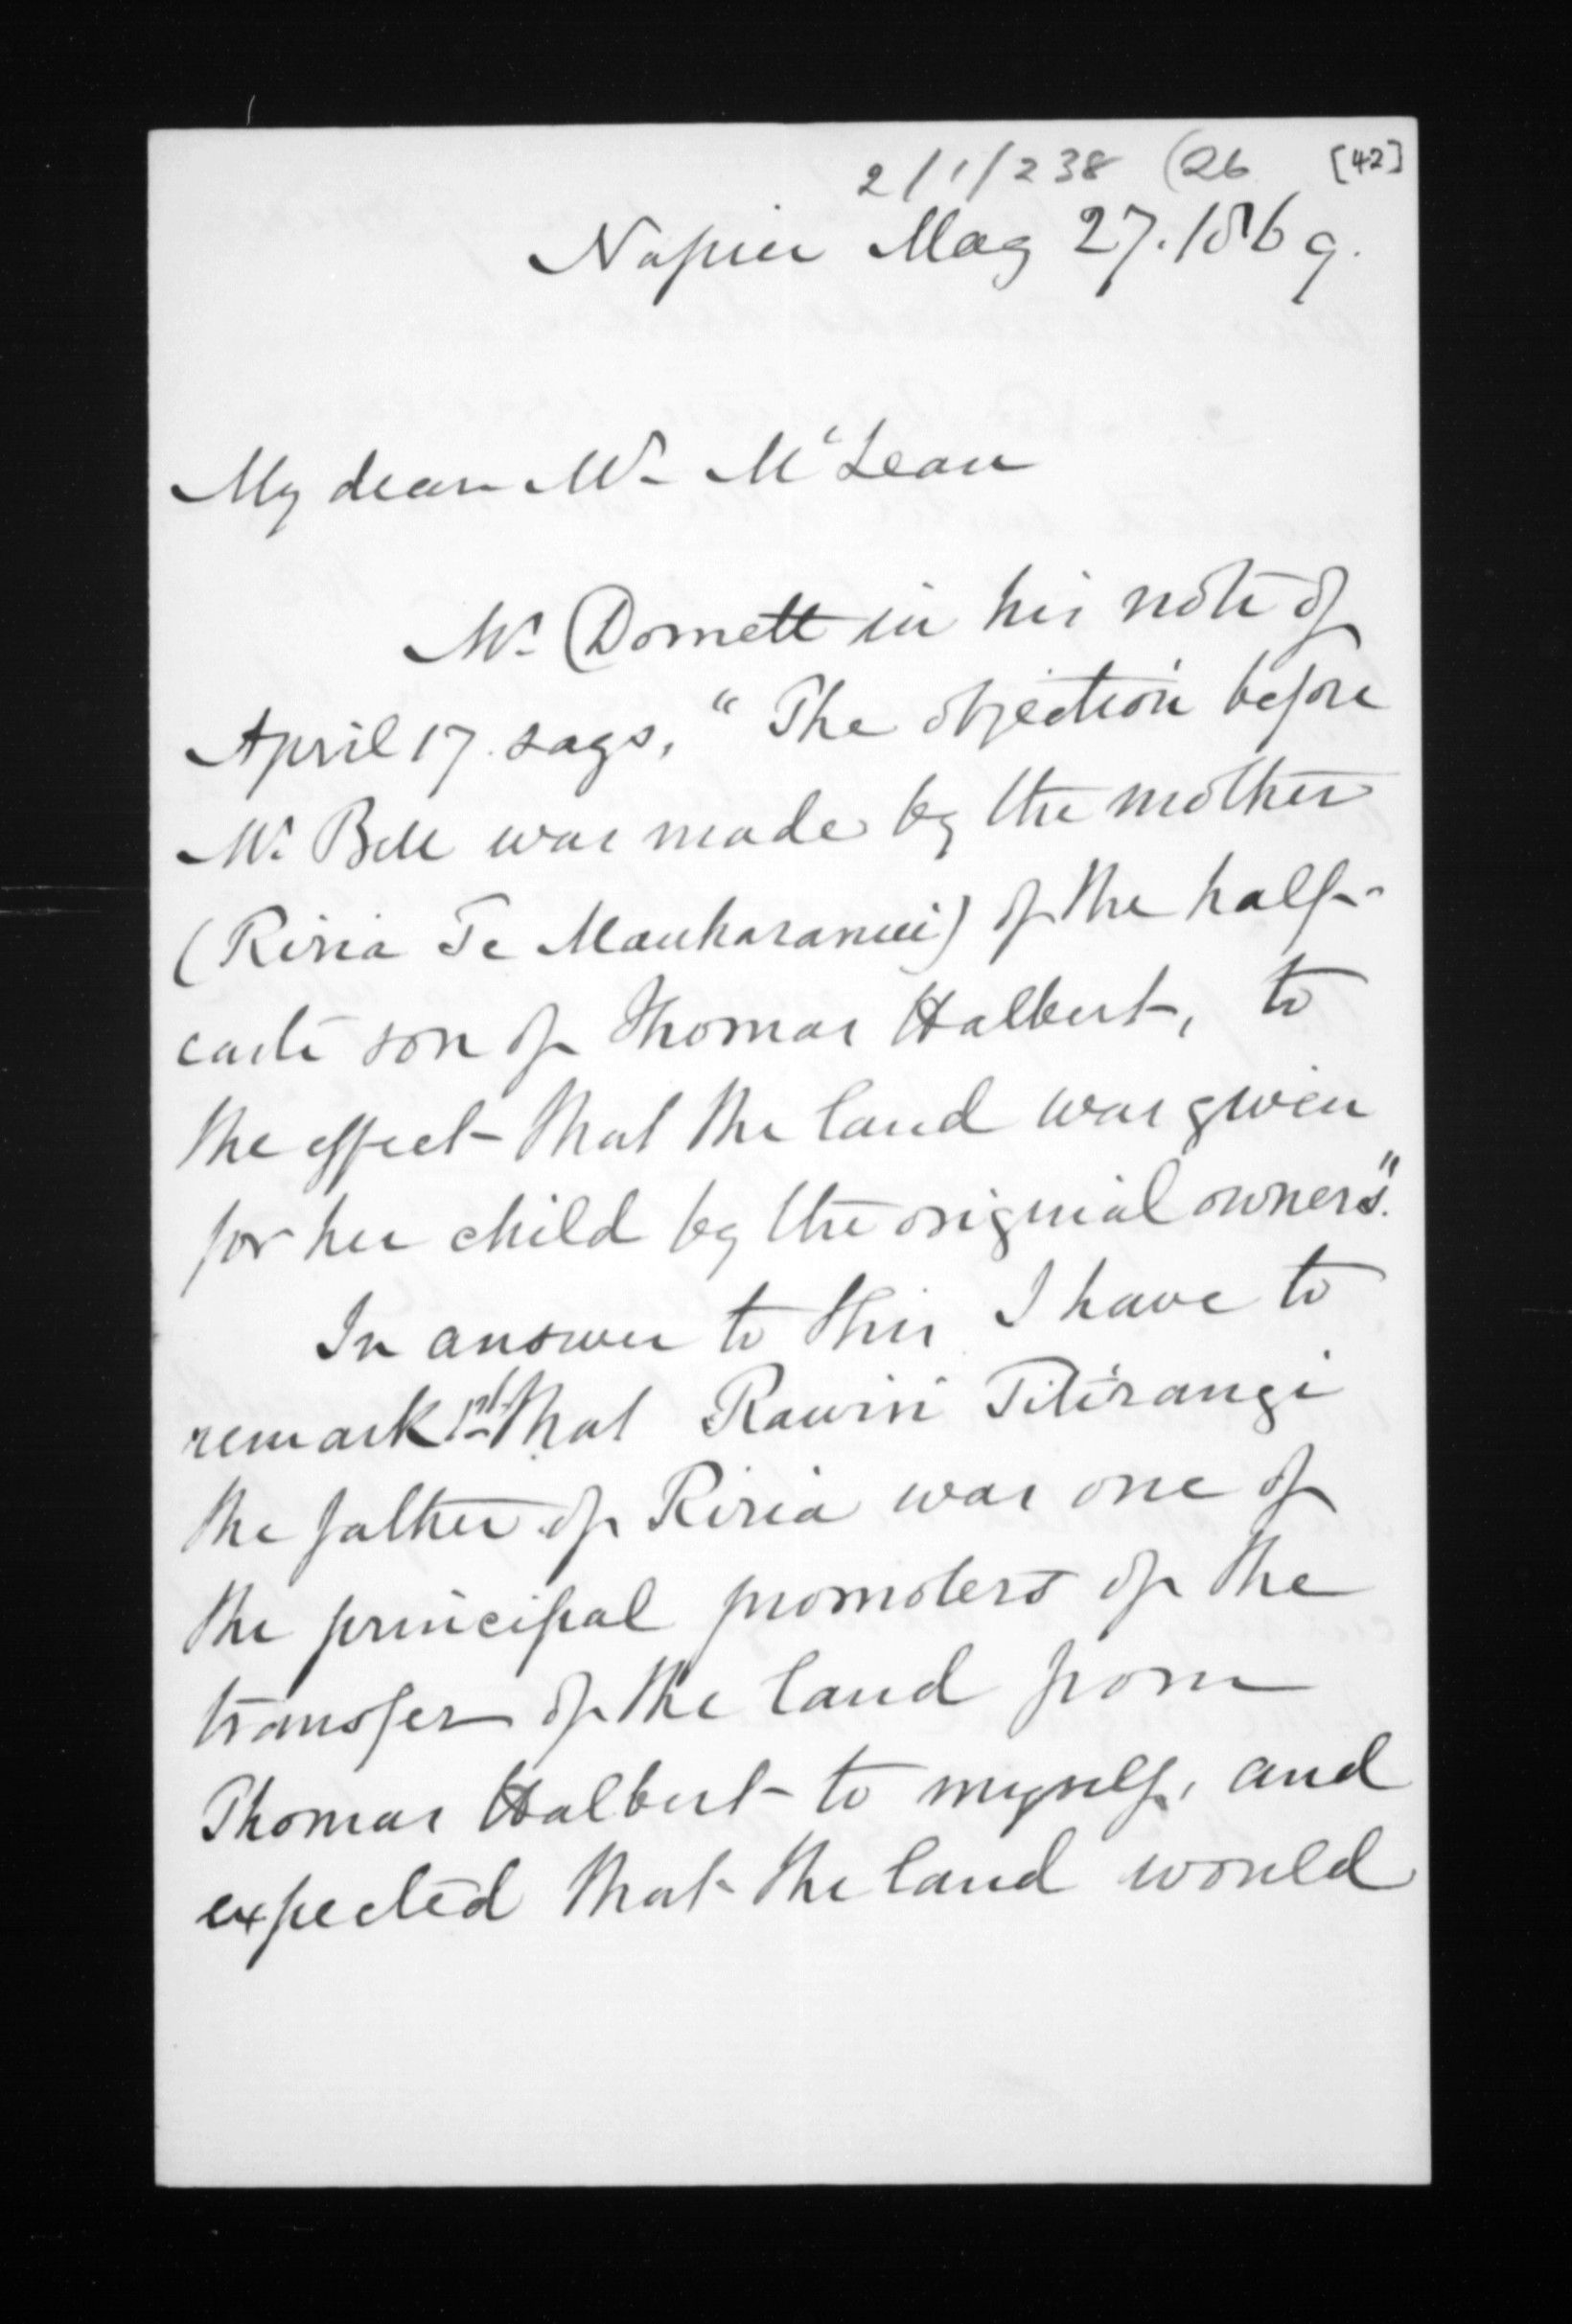 2/1/238 (26 [42]
Napier May 27. 1869.
My dear Mr McLean
Mr Domett in his note of
April 17 says, "The objection before
Mr Bell was made by the mother
(Riria Te Mauharanui) of the half-
caste son of Thomas Halbert, to
the effect that the land was given
for her child by the original owners".
In answer to this I have to
remark 1st that Rawiri Titirangi
the father of Riria was one of
the principal promoters of the
transfer of the land from
Thomas Halbert to myself, and
expected that the land would